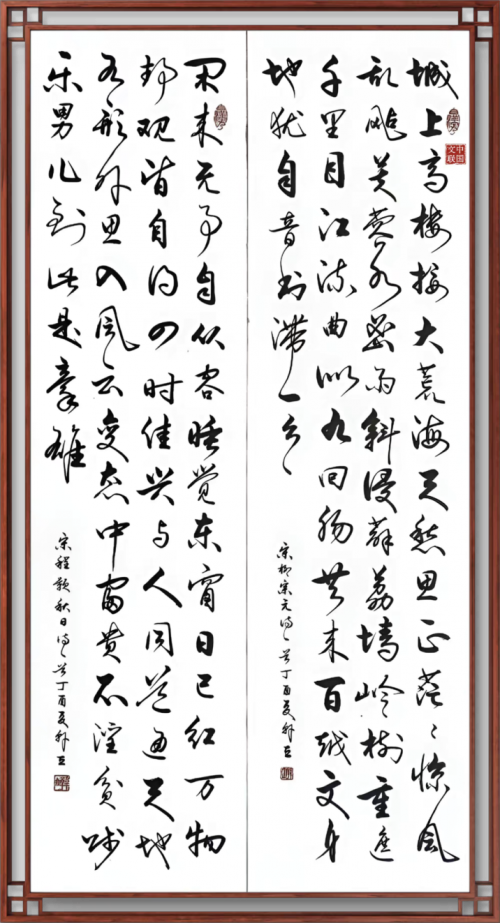 城上高楼接大荒海天愁思正茫茫惊风
乱飐芙蓉水密雨斜侵薜荔墙岭树重遮
千里目江流曲似九回肠共来百越文身
地犹自音书滞一乡
宋柳宗元诗一首丁酉夏
中国文联
闲来无事自从容睡觉东窗日已红万物
静观皆自得四时佳兴与人同道通天地
有形外思入风云变态中富贵不淫贫贱
乐男儿到此是豪雄
宋程颢秋日诗一首丁酉夏